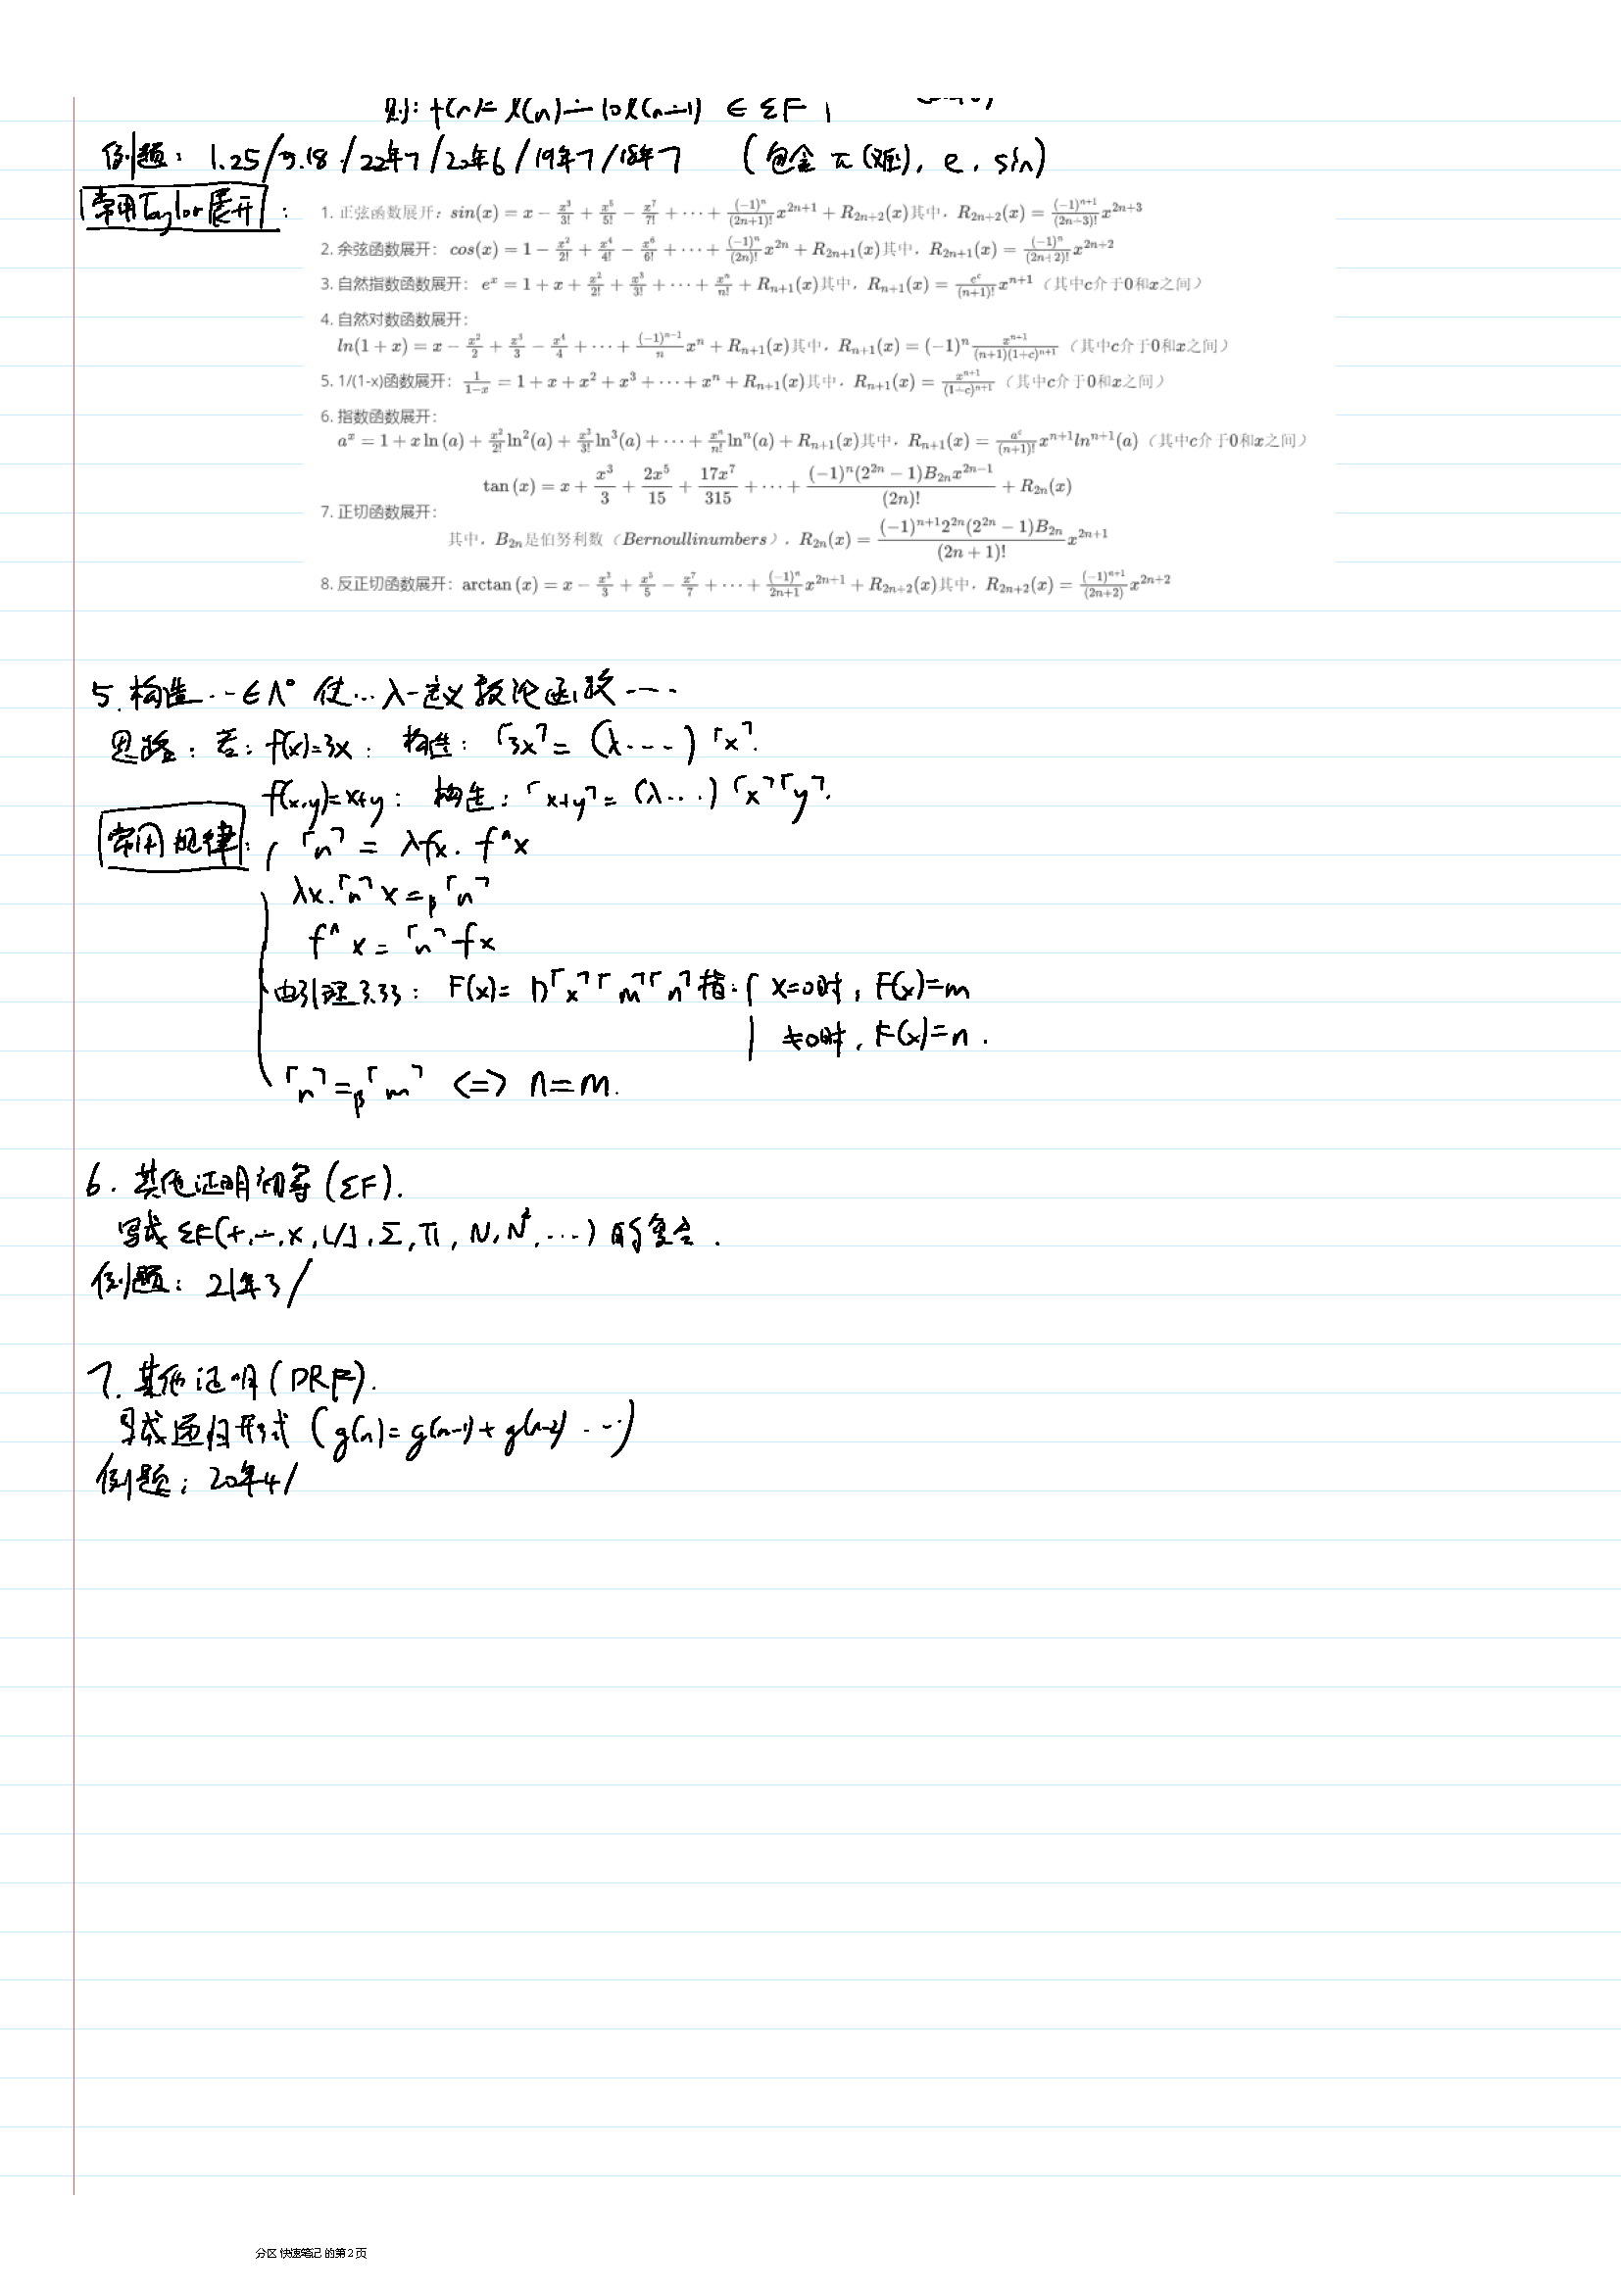 则: f(n)= l(n)∸10l(n∸1) ∈ ΣF ,
例题: 1.25/3.18/22年7/20年6/19年7/18年7 (包含 π(难), e, sin)
常用Taylor展开:
1. 正弦函数展开: sin(x) = x − x³/3! + x⁵/5! − x⁷/7! + ⋯ + (−1)ⁿ/(2n+1)! x²ⁿ⁺¹ + R₂ₙ₊₂(x)其中, R₂ₙ₊₂(x) = (−1)ⁿ⁺¹/(2n+3)! x²ⁿ⁺³
2. 余弦函数展开: cos(x) = 1 − x²/2! + x⁴/4! − x⁶/6! + ⋯ + (−1)ⁿ/(2n)! x²ⁿ + R₂ₙ₊₁(x)其中, R₂ₙ₊₁(x) = (−1)ⁿ/(2n+2)! x²ⁿ⁺²
3. 自然指数函数展开: eˣ = 1 + x + x²/2! + x³/3! + ⋯ + xⁿ/n! + Rₙ₊₁(x)其中, Rₙ₊₁(x) = eᶜ/(n+1)! xⁿ⁺¹ (其中c介于0和x之间)
4. 自然对数函数展开:
ln(1 + x) = x − x²/2 + x³/3 − x⁴/4 + ⋯ + (−1)ⁿ⁻¹/n xⁿ + Rₙ₊₁(x)其中, Rₙ₊₁(x) = (−1)ⁿ xⁿ⁺¹/((n+1)(1+c)ⁿ⁺¹) (其中c介于0和x之间)
5. 1/(1-x)函数展开: 1/(1−x) = 1 + x + x² + x³ + ⋯ + xⁿ + Rₙ₊₁(x)其中, Rₙ₊₁(x) = xⁿ⁺¹/(1−c)ⁿ⁺¹ (其中c介于0和x之间)
6. 指数函数展开:
aˣ = 1 + x ln (a) + x²/2! ln²(a) + x³/3! ln³(a) + ⋯ + xⁿ/n! lnⁿ(a) + Rₙ₊₁(x)其中, Rₙ₊₁(x) = aᶜ/(n+1)! xⁿ⁺¹lnⁿ⁺¹(a) (其中c介于0和x之间)
tan (x) = x + x³/3 + 2x⁵/15 + 17x⁷/315 + ⋯ + (−1)ⁿ(2²ⁿ − 1)B₂ₙx²ⁿ⁻¹/(2n)! + R₂ₙ(x)
7. 正切函数展开:
其中, B₂ₙ是伯努利数 (Bernoullinumbers), R₂ₙ(x) = (−1)ⁿ⁺¹2²ⁿ(2²ⁿ − 1)B₂ₙ/(2n + 1)! x²ⁿ⁺¹
8. 反正切函数展开: arctan (x) = x − x³/3 + x⁵/5 − x⁷/7 + ⋯ + (−1)ⁿ/2n+1 x²ⁿ⁺¹ + R₂ₙ₊₂(x)其中, R₂ₙ₊₂(x) = (−1)ⁿ⁺¹/(2n+2) x²ⁿ⁺²
5. 构造…∈Λ° 使…λ-定义数论函数……
思路: 若: f(x)=3x: 构造: ⌜3x⌝ = (λ……) ⌜x⌝.
f(x,y)=x+y: 构造: ⌜x+y⌝ = (λ…) ⌜x⌝⌜y⌝.
常用规律: ⌜n⌝ = λfx. fⁿx
λx.⌜n⌝x =β ⌜n⌝
fⁿx = ⌜n⌝fx
由引理3.33: F(x)= D⌜x⌝⌜m⌝⌜n⌝指: x=0时, F(x)=m
≠0时, F(x)=n.
⌜n⌝ =β ⌜m⌝ <=> n=m.
6. 其他证明初等(ΣF).
写成 ΣF(+,∸,×,⌊/⌋,Σ,Π,N,N²,…) 的复合.
例题: 21年3/
7. 其他证明(PRF).
写成递归形式 (g(n)=g(n-1)+g(n-2)…)
例题: 20年4/
分区 快速笔记 的第 2 页